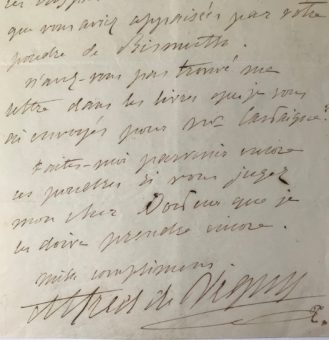 que vous aviez appaisées par votre
poudre de Bismuth.
n'avez-vous pas trouvé une
lettre dans les livres que je vous
ai envoyés pour
Faites-moi parvenir encore
ces poudres si vous jugez
mon cher Docteur que je
les doive prendre encore.
mille complimens.
Alfred de Vigny